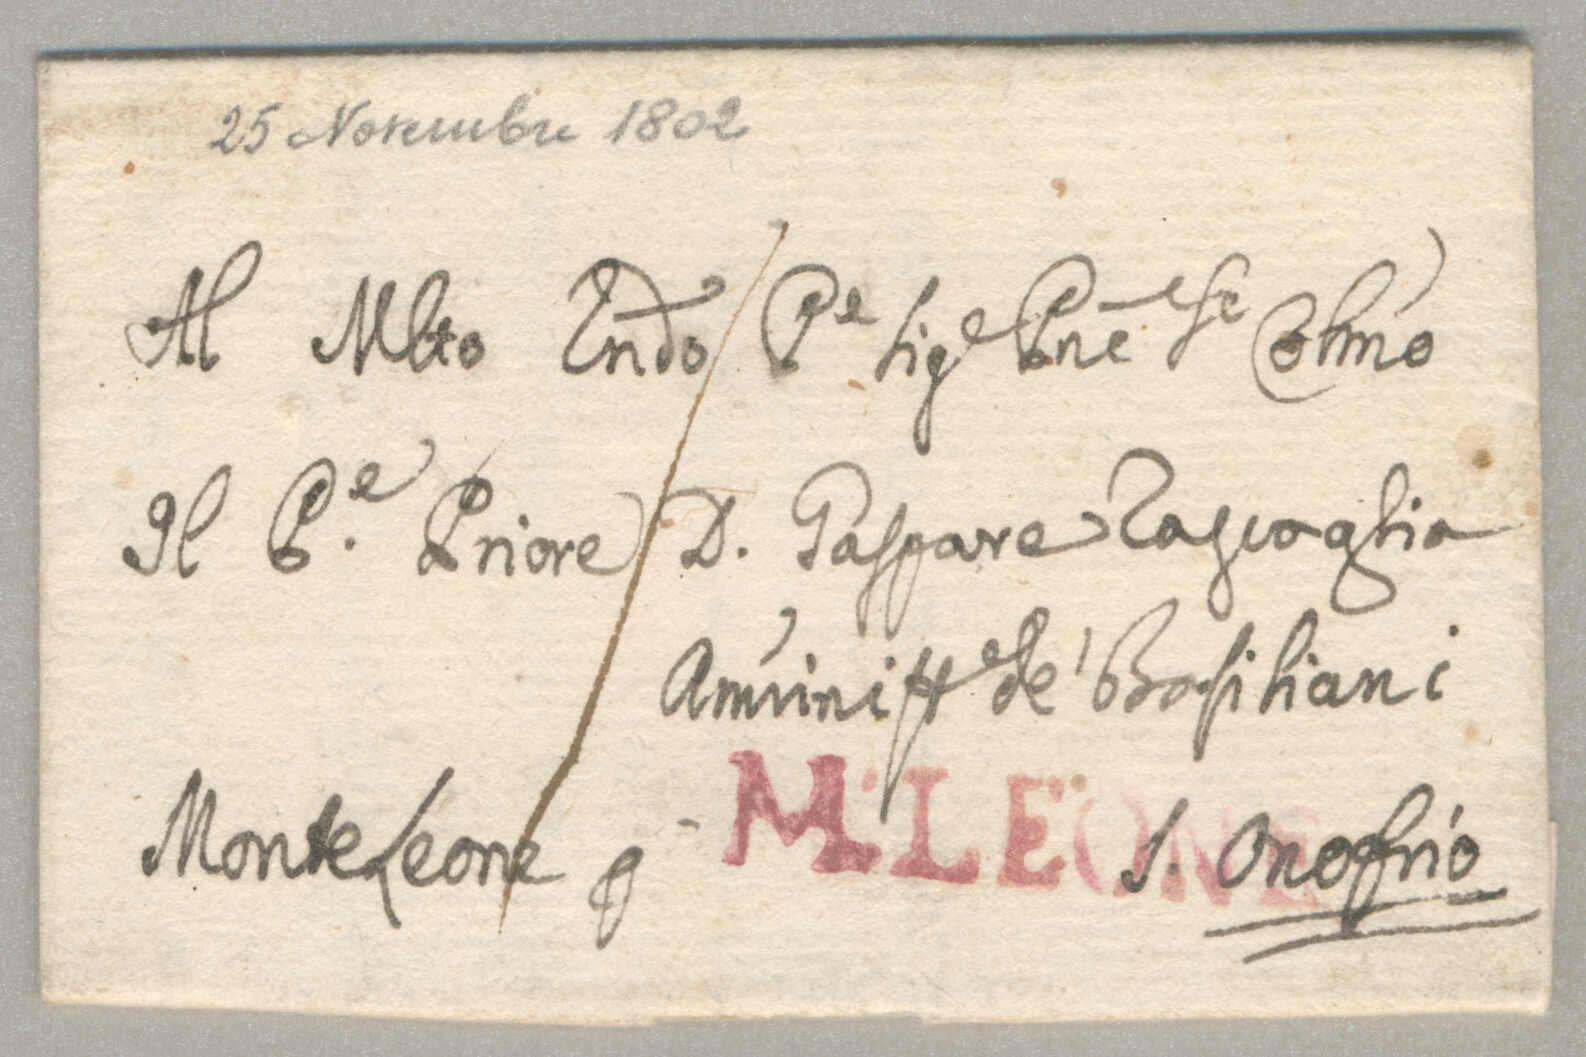 25 Novembre 1802
Al Mlto Rndo Pe Sigr Pne Colmo
Il P.e Priore D. Gaspare Tascaglia
de' Basiliani
MonteLeone p
M.LEONE
S. Onofrio